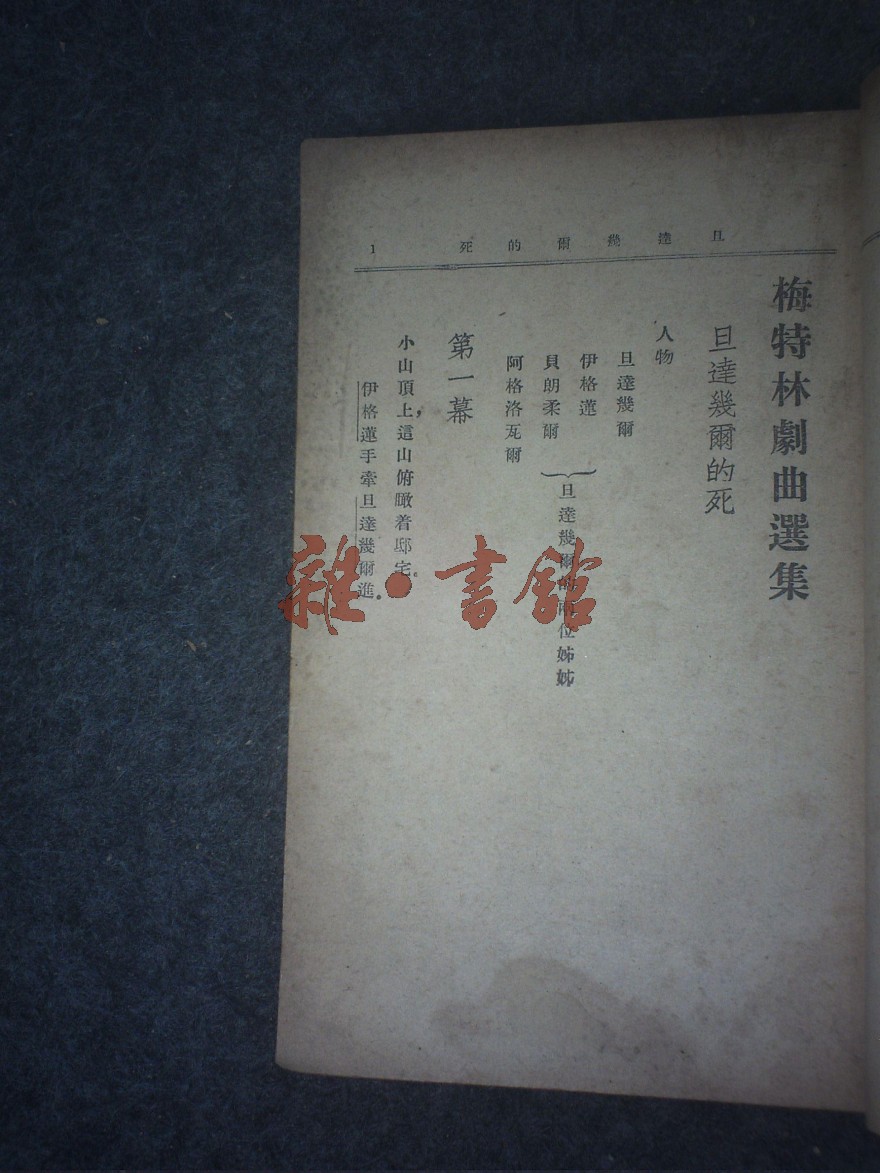 旦達幾爾的死 1
梅特林劇曲選集
旦達幾爾的死
人物
旦達幾爾
伊格蓮
貝朗柔爾
旦達幾爾的兩位姊姊
阿格洛瓦爾
第一幕
小山頂上，這山俯瞰着邸宅。
伊格蓮手牽旦達幾爾進。
雜·書館